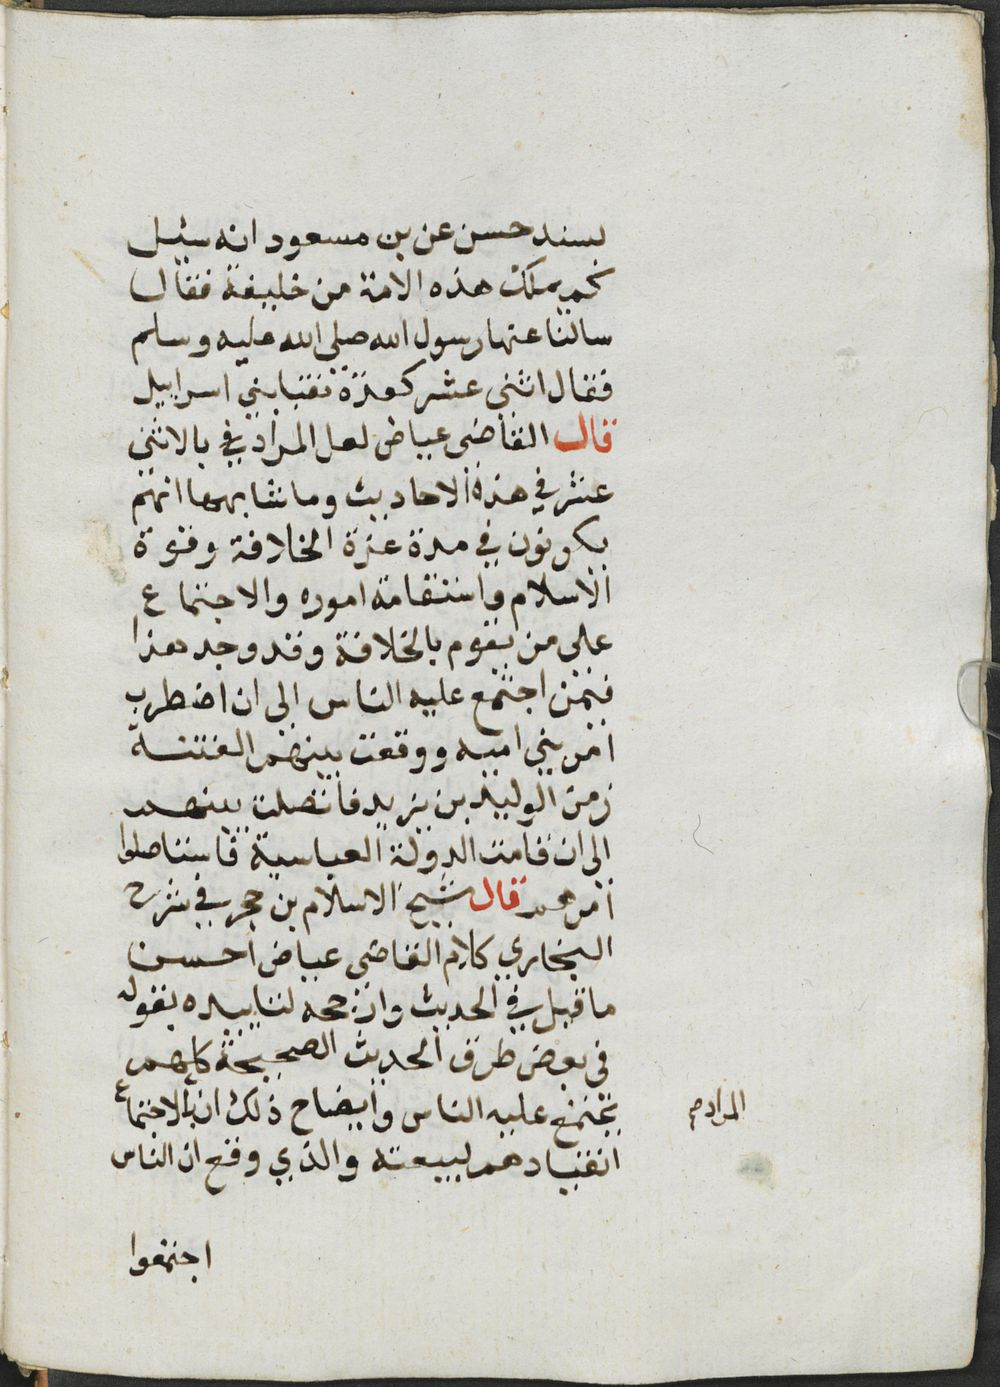 بسند حسن عن بن مسعود انه سئل
كم يملك هذه الامة من خليفة فقال
سالنا عنها رسول الله صلى الله عليه وسلم
فقال اثنى عشر كعدة نقبا بني اسرايل
قال القاضي عياض لعل المراد في بالاثني
عشر في هذه الاحاديث وما شابهها انهم
يكونون في مدة عزة الخلافة وقوة
الاسلام واستقامة اموره والاجتماع
على من يقوم بالخلافة وقد وجد هذا
فيمن اجتمع عليه الناس الى ان اضطرب
امر بني امية ووقعت بينهم الفتنة
زمن الوليد بن يزيد فاتصلت بينهم
الى ان قامت الدولة العباسية فاستاصلوا
امرهم قال شيخ الاسلام بن حجر في شرح
البخاري كلام القاضي عياض احسن
ما قيل في الحديث وارجحه لتاييده بقوله
في بعض طرق الحديث الصحيحة كلهم
يجتمع عليه الناس وايضاح ذلك ان بالاجتماع
المراد صح
انقيادهم لبيعته والذي وقع ان الناس
اجتمعوا